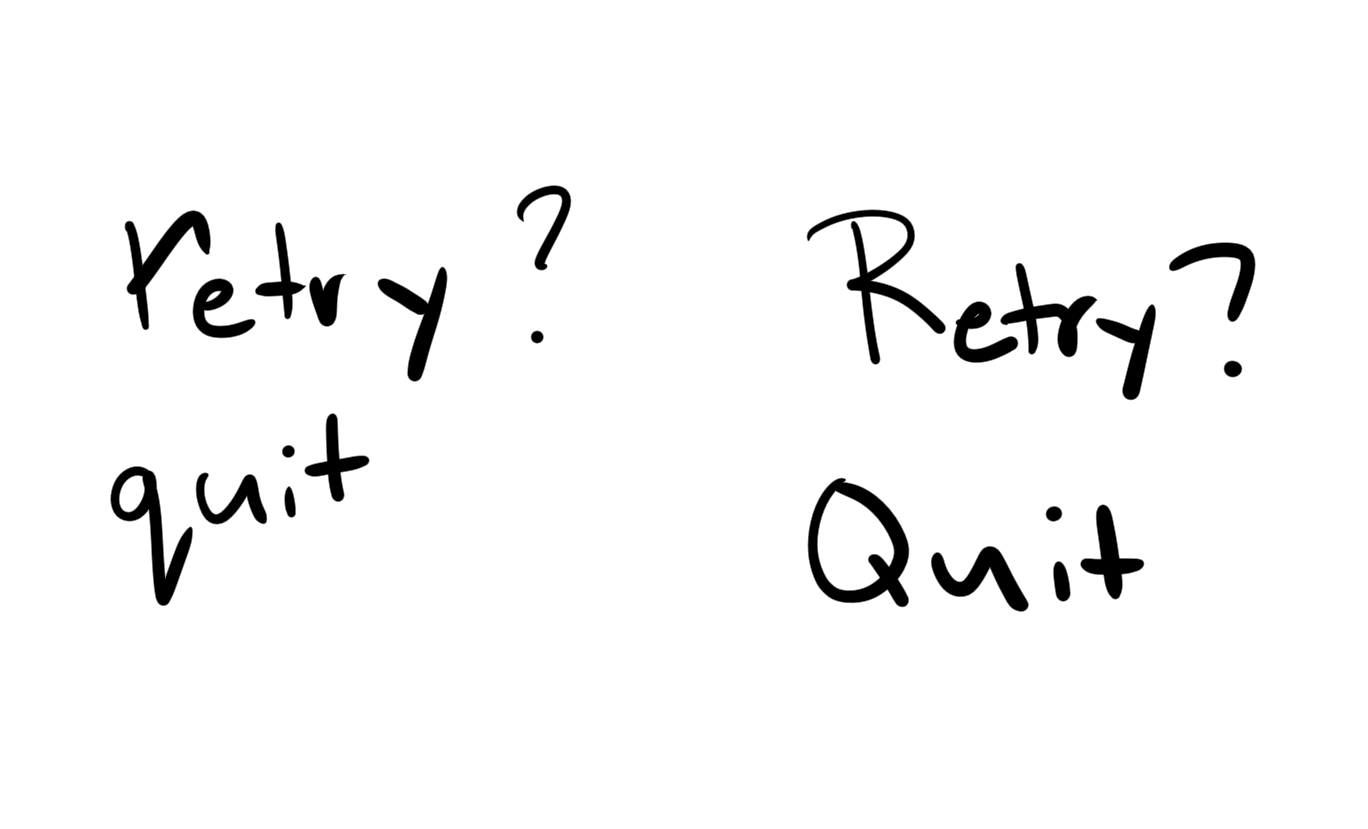 retry?
quit
Retry?
Quit